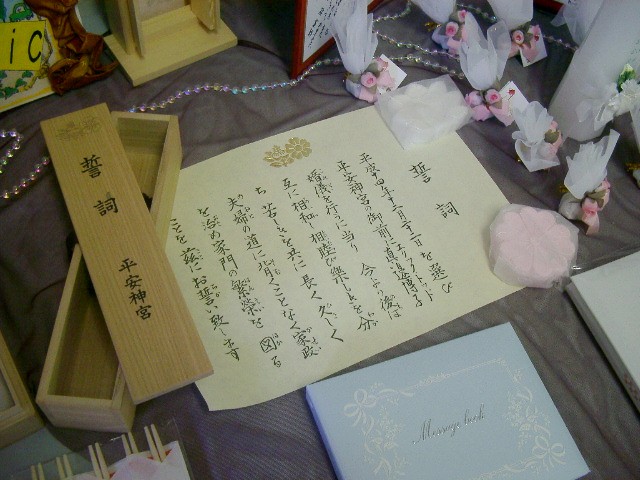 誓詞
平安神宮
誓詞
平成四年 を選び
平安神宮の御前に
婚儀を行うに当り 今より後は
互に相和し相睦び楽しきを分
ち 苦しきを共に 長く久しく
夫婦の道に背くことなく家政
を治め家門の繁栄を 図る
ことを茲にお誓い致します
Message book
ic